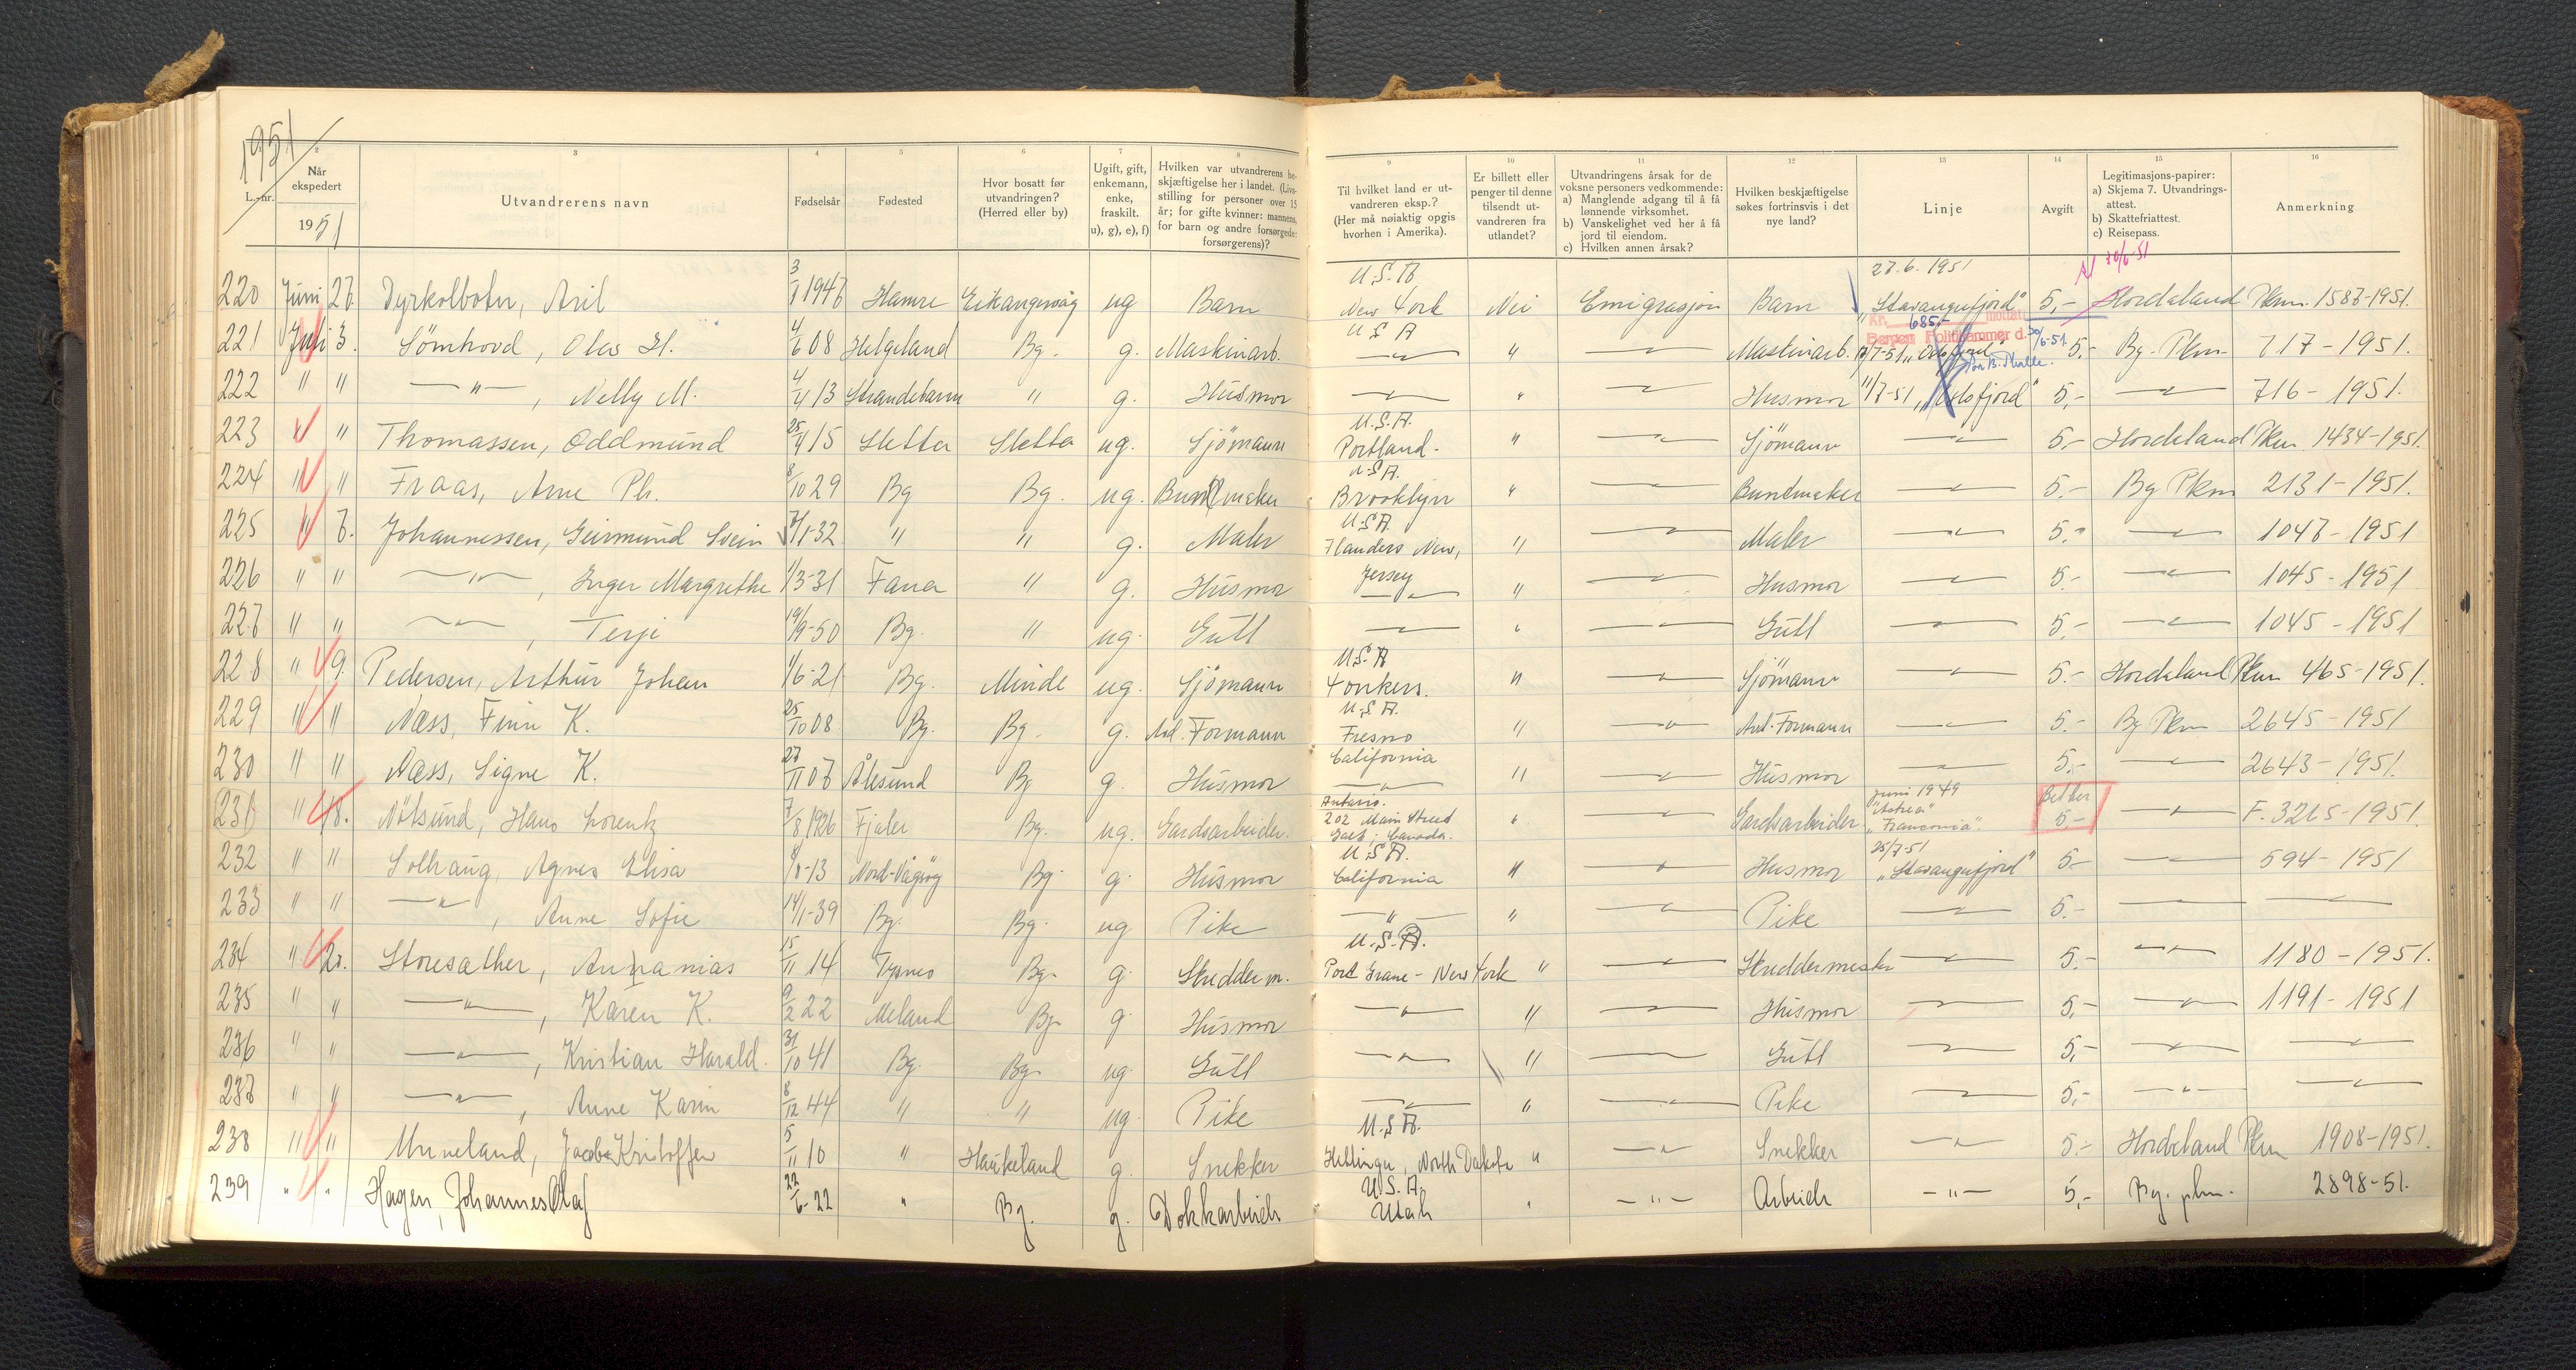 1951
2 3 4 5 6 7 8 9 10 11 12 13 14 15 16
L.-nr.
Når ekspedert
1951
Utvandrerens navn
Fødselsår
Fødested
Hvor bosatt før utvandringen? (Herred eller by)
Ugift, gift, enkemann, enke, fraskilt. u), g), e), f)
Hvilken var utvandrerens beskjæftigelse her i landet. (Livsstilling for personer over 15 år; for gifte kvinner: mannens, for barn og andre forsørgede: forsørgerens)?
Til hvilket land er utvandreren eksp.? (Her må nøiaktig opgis hvorhen i Amerika).
Er billett eller penger til denne tilsendt utvandreren fra utlandet?
Utvandringens årsak for de voksne personers vedkommende:
a) Manglende adgang til å få lønnende virksomhet.
b) Vanskelighet ved her å få jord til eiendom.
c) Hvilken annen årsak?
Hvilken beskjæftigelse søkes fortrinsvis i det nye land?
Linje
Avgift
Legitimasjons-papirer:
a) Skjema 7. Utvandringsattest.
b) Skattefriattest.
c) Reisepass.
Anmerkning
30/6-51
220 Juni 27. Dyrkolbotn, Aril 3/1 1947 Hamre Eikangervåg ug Barn U.S.A New York Nei Emigrasjon Barn 27.6.1951 "Stavangerfjord" 5,- Hordaland Pkm. 1587-1951.
Kr. 685,- mottatt
Bergen Politikammer d. 30/6-51
221 Juli 3. Sömhovd, Olas H. 4/6 08 Helgeland Bg. g. Maskinarb. U S A " Maskinarb. /7-51 "Oslofjord" 5.- Bg. Pkm 717-1951.
222 " " —"—, Nelly M. 4/4 13 Strandebarm " g. Husmor —"— " —"— Husmor 11/7-51 "Oslofjord" 5,- —"— 716-1951.
223 " " Thomassen, Oddmund 25/4 15 Sletta Sletta ug. Sjömann U.S.A. Portland. " —"— Sjömann —"— 5,- Hordaland Pkm 1434-1951.
224 " " Fraas, Arne Ph. 8/10 29 Bg Bg. ug. Buntmaker U.S.A. Brooklyn " —"— Buntmaker —"— 5.- Bg Pkm 2131-1951.
225 " 7. Johannessen, Geirmund Svein 7/1-32 " " g. Maler U.S.A. Flanders New, Jersey " —"— Maler —"— 5.- —"— 1047-1951
226 " " —"—, Inger Margrethe 1/3-31 Fana " g. Husmor —"— " —"— Husmor —"— 5.- —"— 1045-1951
227 " " —"—, Terje 19/9-50 Bg. " ug. Gutt —"— " —"— Gutt —"— 5.- —"— 1045-1951
228 " 9. Pedersen, Arthur Johan 1/6-21 Bg. Minde ug. Sjömann U.S.A Yonkers. " —"— Sjömann —"— 5.- Hordaland Pkm 465-1951.
229 " " Næss, Finn K. 25/10 08 Bg. Bg. g. Formann U.S.A. Fresno California " —"— Formann —"— 5.- Bg Pkm 2645-1951
230 " " Næss, Signe K. 27/11 07 Ålesund Bg g. Husmor —"— " —"— Husmor —"— 5.- —"— 2643-1951.
231 " 18. Nötsund, Hans Lorentz 7/8 1926 Fjaler Bg. ug. Gardsarbeider. Antario. 202 Main Street Galt; Canada. " —"— Gardsarbeider juni 1949 "Astrea" "Franconia". 5.- —"— F. 3265-1951.
232 " " Solhaug, Agnes Elisa /8-13 Nord-Vågsøy Bg. g. Husmor U.S.A. California " —"— Husmor 25/7-51 "Stavangerfjord" 5.- —"— 594-1951
233 " " —"—, Anne Sofie 14/1-39 Bg. Bg. ug Pike —"— " —"— Pike —"— 5.- —"— —"—
234 " 20. Storesæther, Annanias 15/11 14 Tysnes Bg. g. Skredder m. U.S.A. Port - New York " —"— Skreddermester —"— 5.- —"— 1180-1951.
235 " " —"—, Karen K. 9/2 22 Meland Bg. g. Husmor —"— " —"— Husmor —"— 5,- —"— 1191-1951
236 " " —"—, Kristian Harald. 31/10 41 Bg. Bg. ug. Gutt —"— " —"— Gutt —"— 5,- —"— —"—
237 " " —"—, Anne Karin 8/12 44 " " ug. Pike —"— " —"— Pike —"— 5,- —"— —"—
238 " " Unneland, Jacob Kristoffer 5/11 10 " Haukeland g. Snekker U.S.A. Hettinger, North Dakota " —"— Snekker —"— 5.- Hordaland Pkm 1908-1951.
239 " " Hagen, Johannes Olaf 22/6-22 " Bg. g. Dokkarbeider U.S.A. Utah " —"— Arbeider —"— 5,- Bg. pkm. 2898-51.